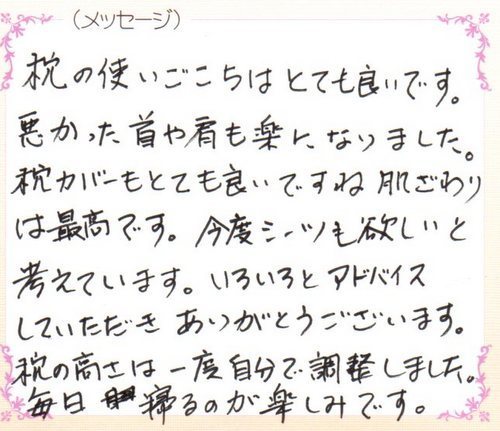 （メッセージ）
枕の使いごこちはとても良いです。
悪かった首や肩も楽になりました。
枕カバーもとても良いですね 肌ざわり
は最高です。今度シーツも欲しいと
考えています。いろいろとアドバイス
していただきありがとうございます。
枕の高さは一度自分で調整しました。
毎日 寝るのが楽しみです。